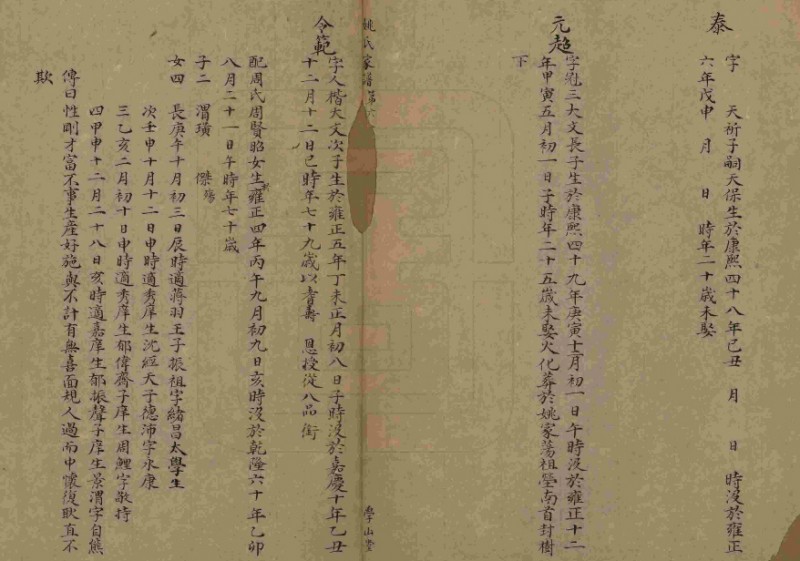 泰
字　天祈子嗣天保生於康熙四十八年己丑　月　日　時沒於雍正
六年戊申　月　日　時年二十歲未娶
元超
字冠三大文長子生於康熙四十九年庚寅十二月初一日午時沒於雍正十二
年甲寅五月初一日子時年二十五歲未娶火化葬於姚家蕩祖塋南首封樹
下
姚氏家譜第六
學山堂
令範
字人楷大文次子生於雍正五年丁未正月初八日子時沒於嘉慶十年乙丑
十二月十二日巳時年七十九歲以耆壽　恩授從八品銜
配周氏周賢昭女生於雍正四年丙午九月初九日亥時沒於乾隆六十年乙卯
八月二十一日午時年七十歲
子二　渭璜　傑殤
女四　長庚午十月初三日辰時適蔣羽王子振祖字緒昌太學生
次壬申十月十二日申時適秀庠生沈經天子德沛字永康
三乙亥二月初十日申時適秀庠生郁偉齋子庠生周鯉字敬持
四甲申十二月二十八日亥時適嘉庠生郁振聲子庠生景渭字自熊
傳曰性剛才富不事生産好施與不計有無喜面規人過而中懷復耿直不
欺